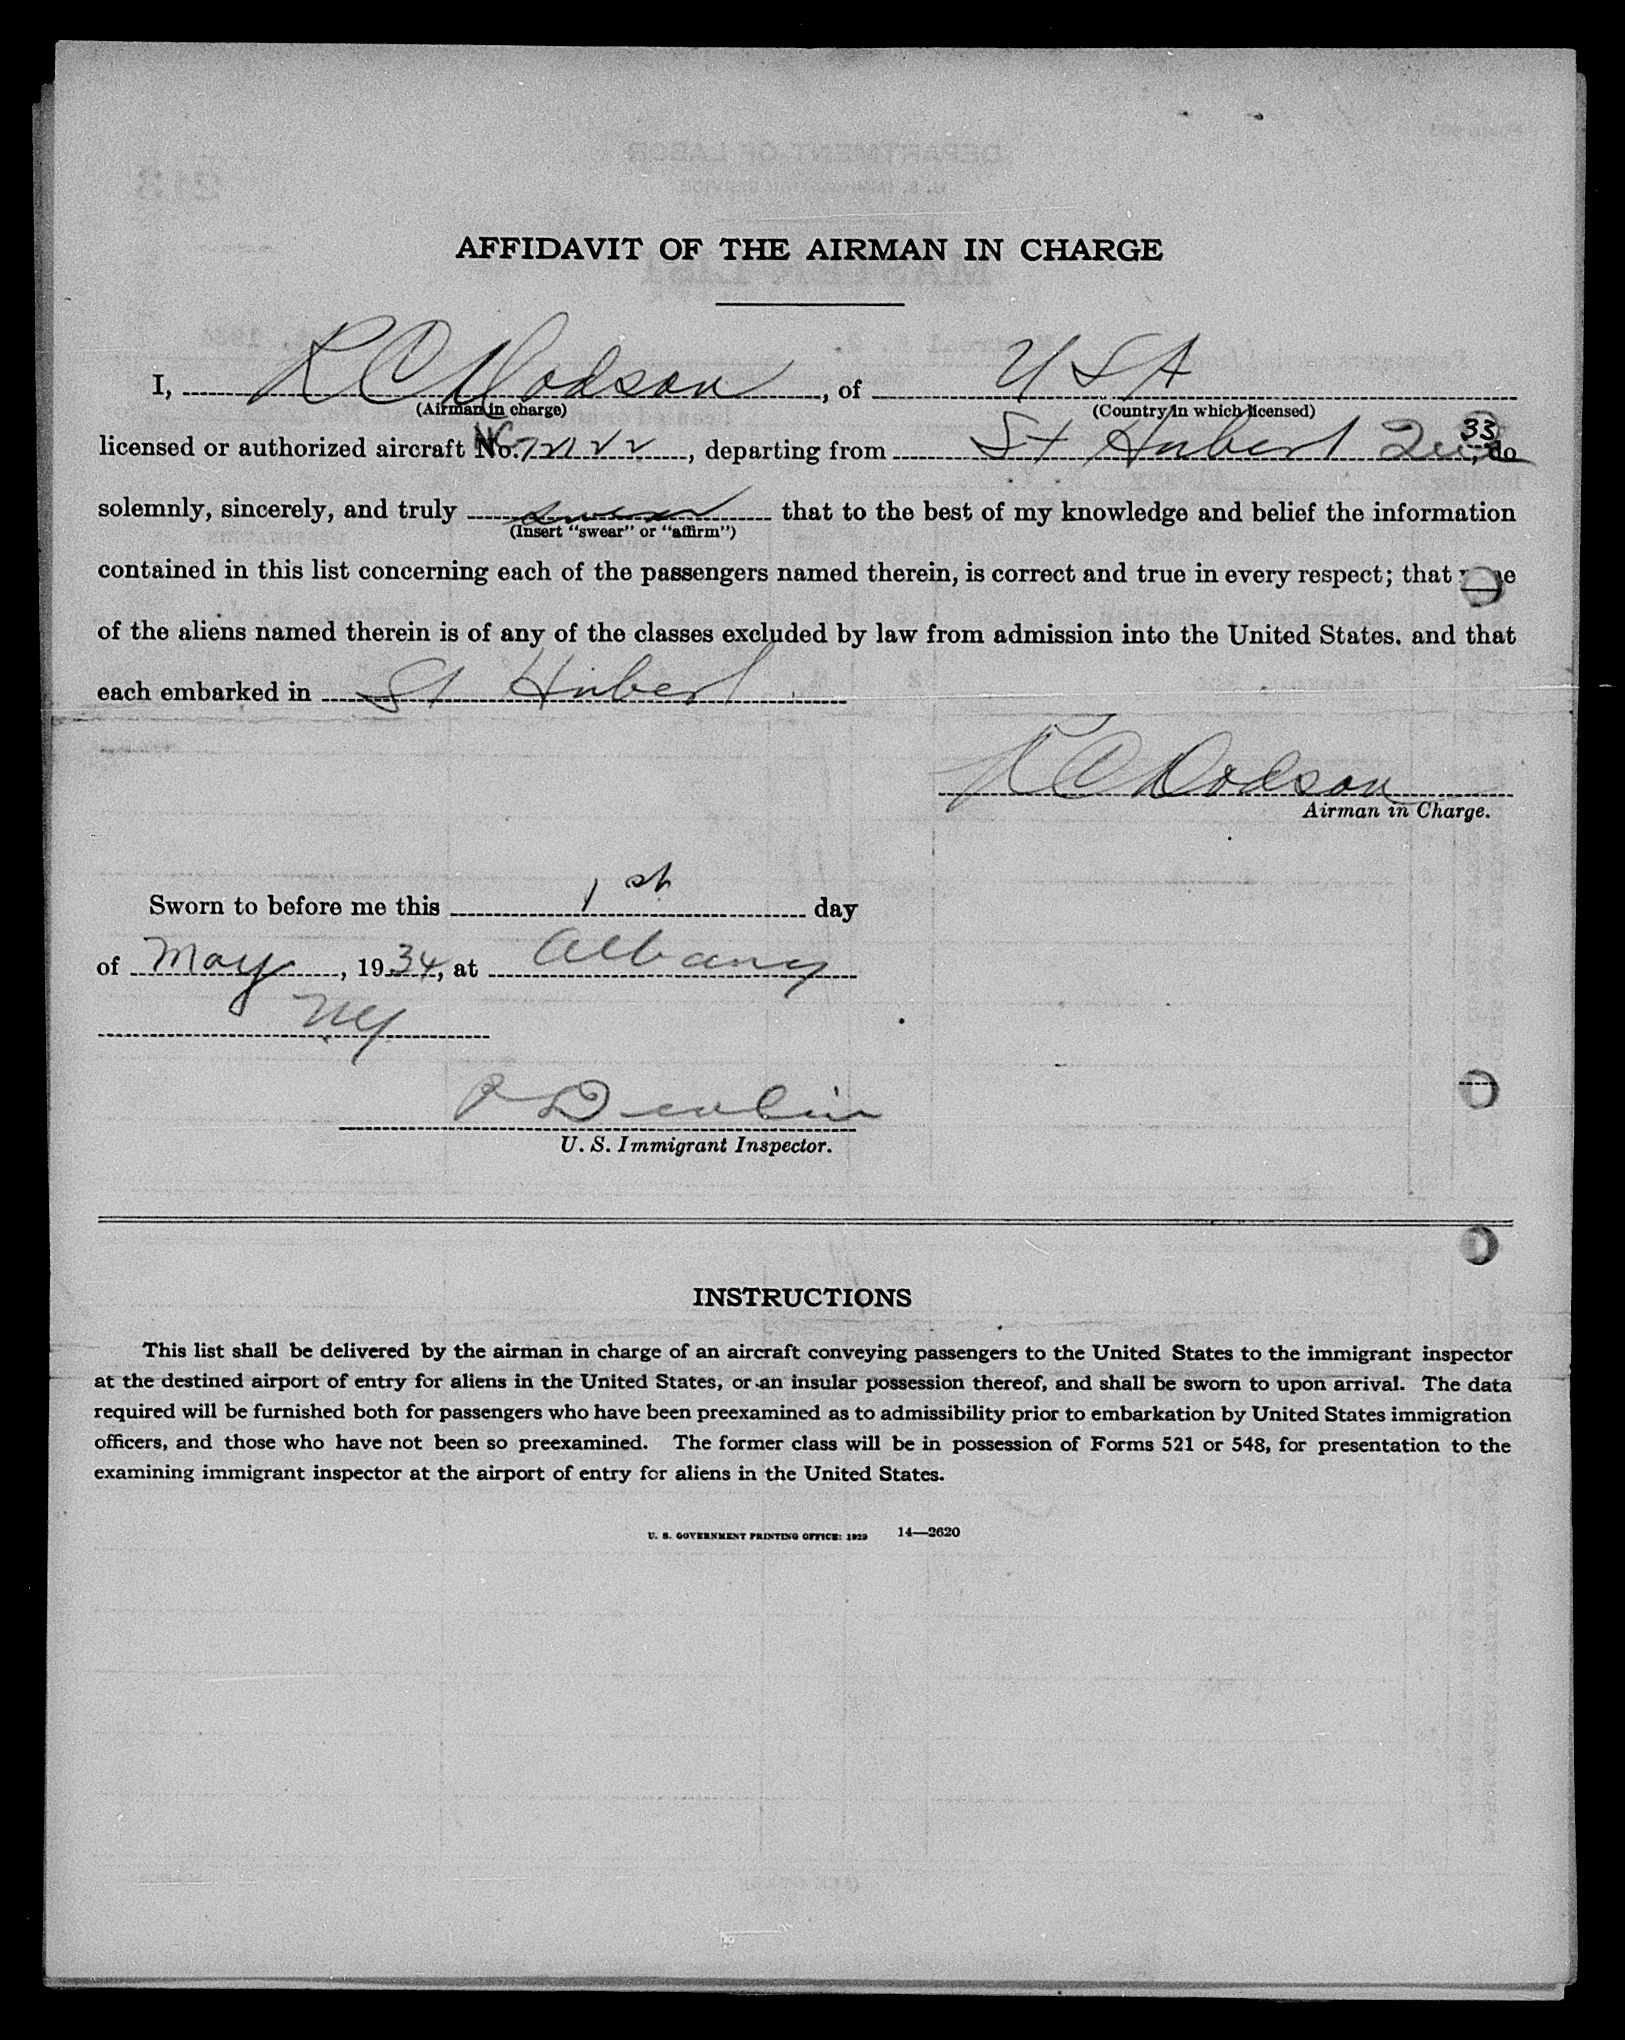 AFFIDAVIT OF THE AIRMAN IN CHARGE
I, R C Dodson, of U S A
(Airman in charge) (Country in which licensed)
licensed or authorized aircraft No. NC, departing from St Hubert Que, do
33
solemnly, sincerely, and truly swear that to the best of my knowledge and belief the information
(Insert "swear" or "affirm")
contained in this list concerning each of the passengers named therein, is correct and true in every respect; that
of the aliens named therein is of any of the classes excluded by law from admission into the United States. and that
each embarked in St Hubert
R C Dodson
Airman in Charge.
Sworn to before me this 1st day
of May, 1934, at Albany
NY
P Devlin
U. S. Immigrant Inspector.
INSTRUCTIONS
This list shall be delivered by the airman in charge of an aircraft conveying passengers to the United States to the immigrant inspector
at the destined airport of entry for aliens in the United States, or an insular possession thereof, and shall be sworn to upon arrival. The data
required will be furnished both for passengers who have been preexamined as to admissibility prior to embarkation by United States immigration
officers, and those who have not been so preexamined. The former class will be in possession of Forms 521 or 548, for presentation to the
examining immigrant inspector at the airport of entry for aliens in the United States.
U. S. GOVERNMENT PRINTING OFFICE: 1929 14—2620